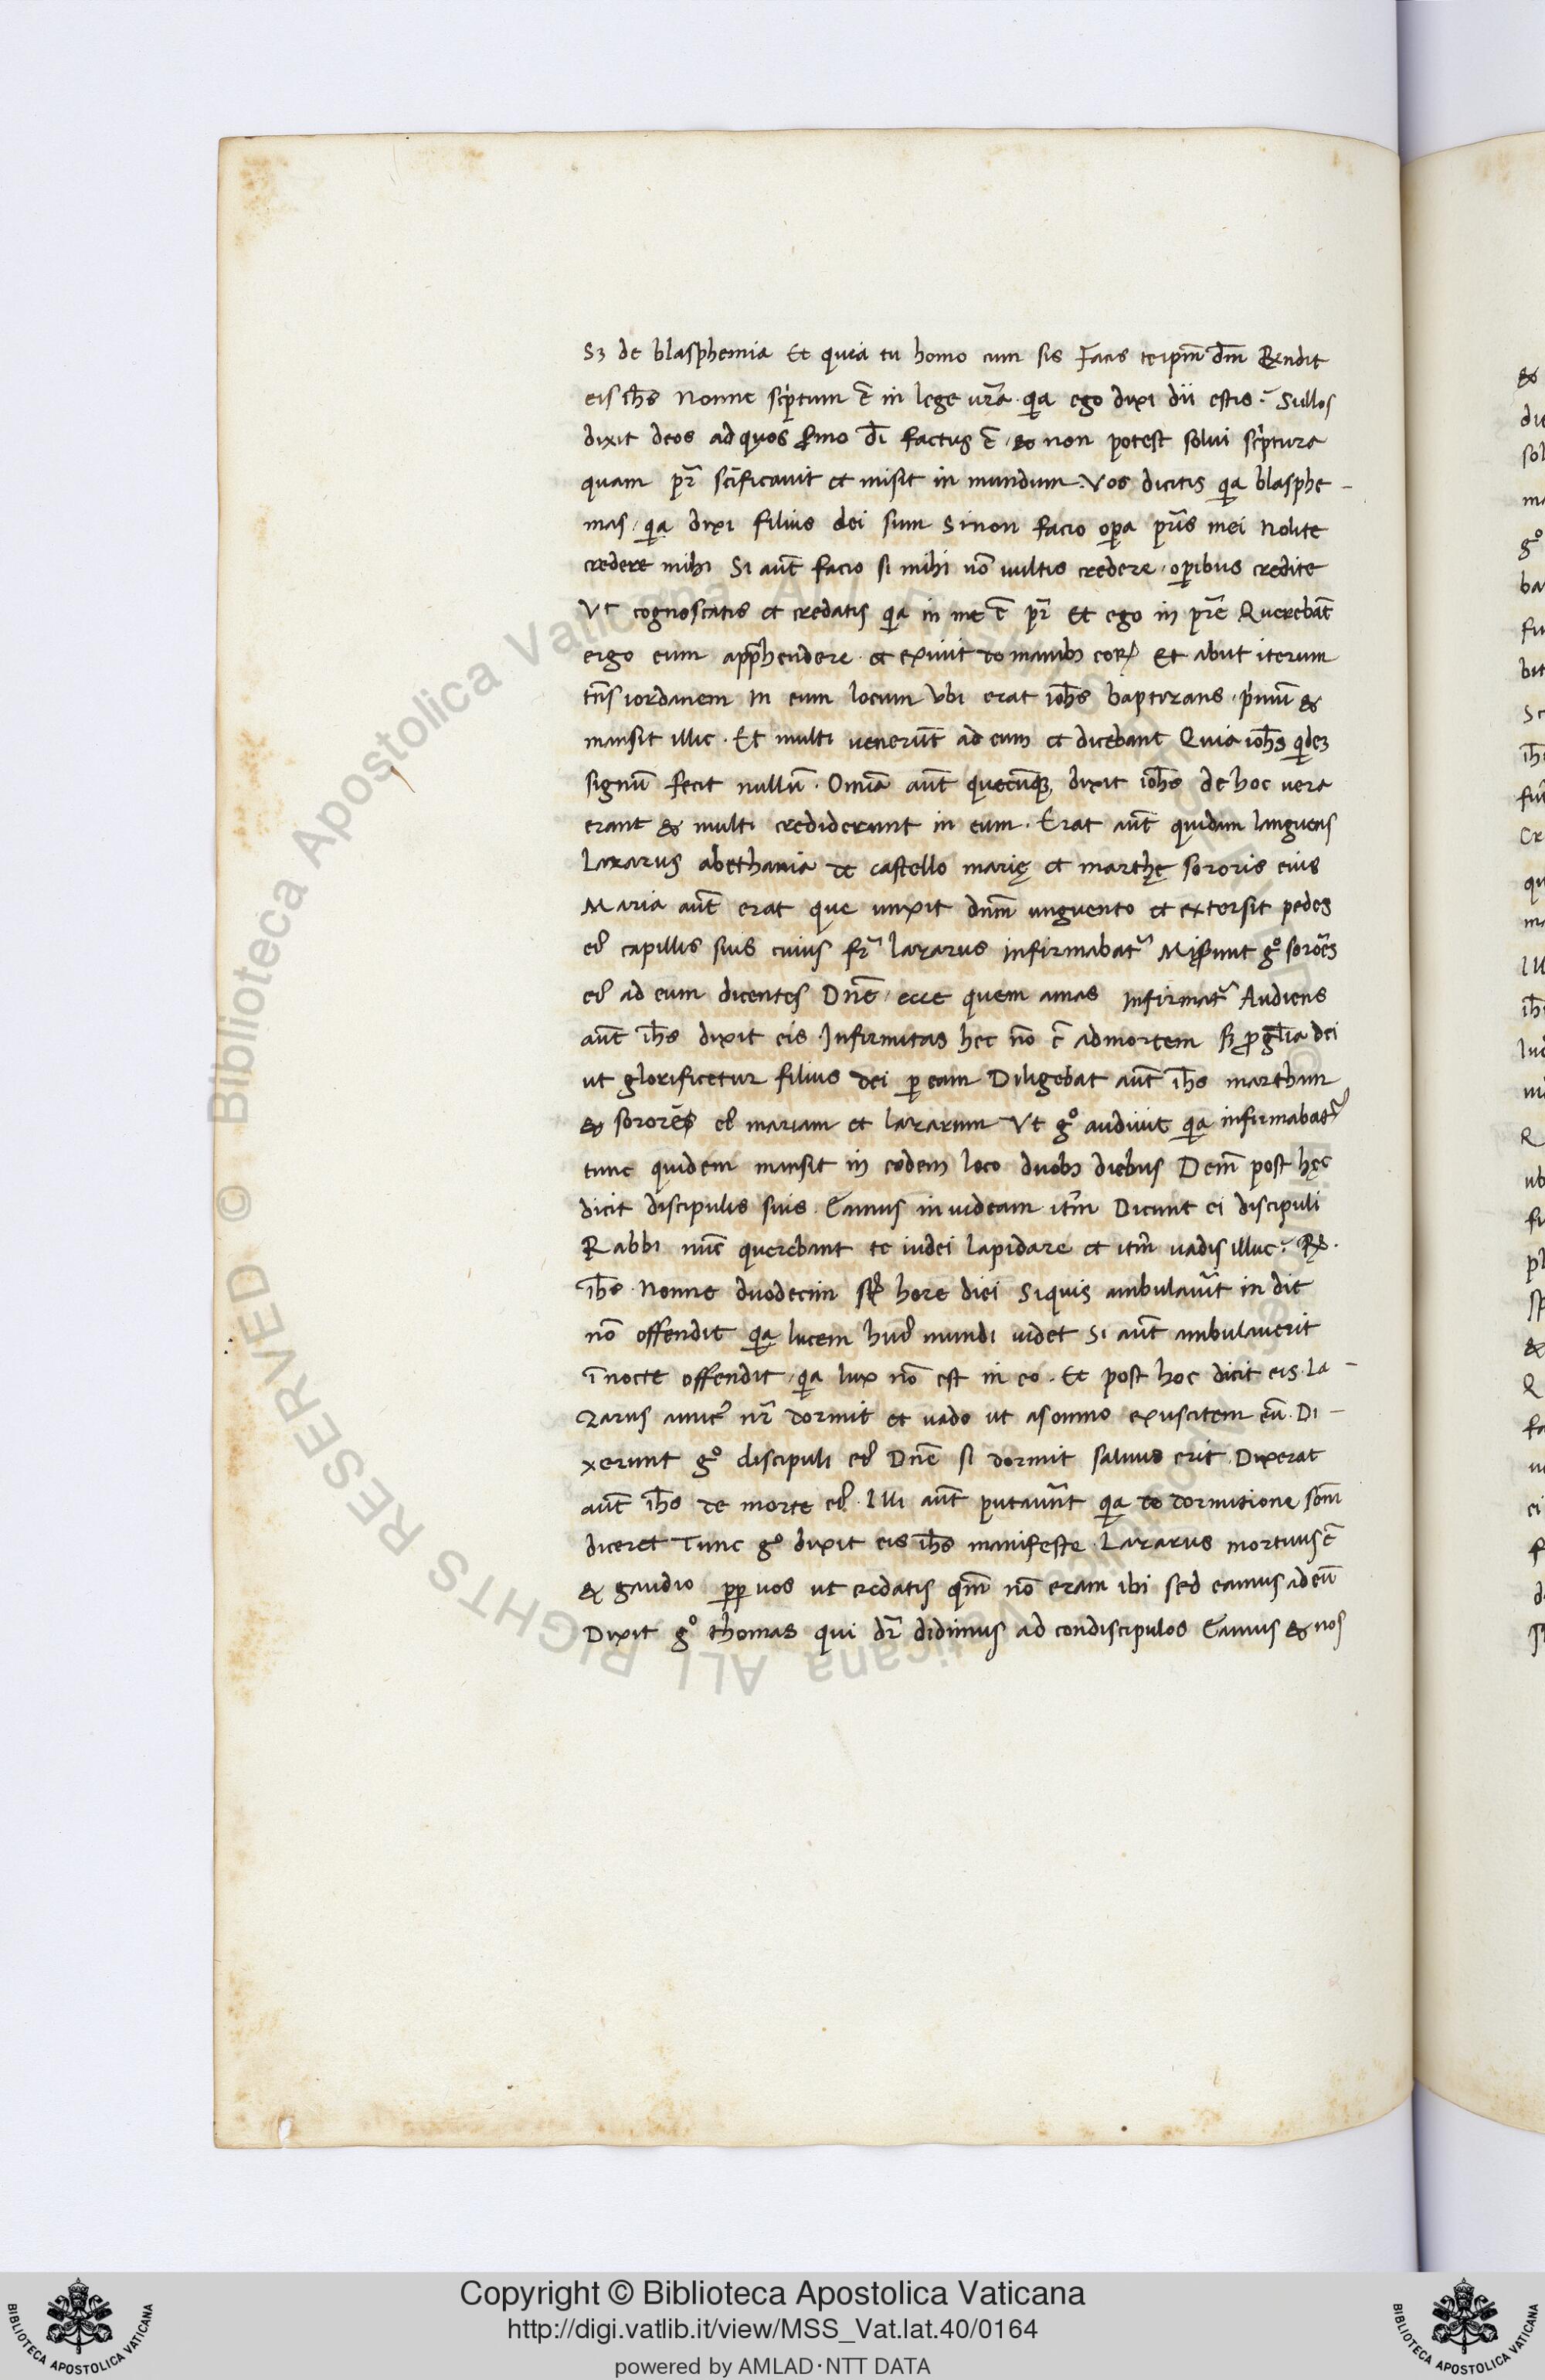 Sꝫ de blasphemia Et quia tu homo cum sis Facis teipm̄ dm̄ Rn̄dit
eis ih̄s Nonne scͥptum ē in lege urā. qͥa ego dixi dii estis? Si illos
dixit deos ad quos s̄mo dī factus ē. & non potest solui scͥptura
quam pr̄ scīficauit et misit in mundum. Vos dicitis qͥa blasphe-
mas. qͥa dixi filius dei sum Si non facio oꝑa prīs mei Nolite
credere mihi Si aut̄ facio si mihi nō uultis credere. oꝑibus credite
Vt cognoscatis et credatis qͥa in me ē pr̄ Et ego in prē Querebāt
ergo eum app̄hendere. et exiuit de manibꝫ eoꝝ Et abiit iterum
tn̄s iordanem In eum locum Vbi erat ioh̄s baptizans. pͥmū &
mansit illic. Et multi venerūt ad eum et dicebant Quia ioh̄s qͥdeꝫ
signū fecit nullū. Omīa aut̄ quecūqꝫ dixit ioh̄s de hoc uera
erant & multi crediderunt in eum. Erat aut̄ quidam languens
Lazarus abethania de castello marię et marthę sororis eius
Maria aut̄ erat que unxit dnm̄ unguento et extersit pedes
eꝰ capillis suis cuius fr̄ lazarus infirmabatᷣ Miserunt gͦ sorōes
eꝰ ad eum dicentes Dnē. ecce quem amas Infirmatᷣ Audiens
aut̄ ih̄s dixit eis. Infirmitas hec nō ē ad mortem sꝫ ꝓ glīa dei
ut glorificetur filius dei ꝑ eam Diligebat aut̄ ih̄s martham
& sororē eꝰ mariam et lazarum Vt gͦ audiuit qͥa infirmabatᷣ
tunc quidem mansit in eodem loco duobꝫ diebus Dein̄ post hęc
dicit discipulis suis. Eamus in iudeam. itm̄ Dicunt ei discipuli
Rabbi nūc querebant te iudei lapidare et itm̄ uadis illuc? R̄.
ih̄s. Nonne duodecim st̄ hore diei Siquis ambulauīt in die
nō offendit qͥa lucem huꝰ mundi uidet Si aut̄ ambulauerit
ī nocte offendit. qͥa lux nō est in eo. Et post hoc dicit eis. La-
zarus amicꝰ nr̄ dormit et uado ut asomno exuscitem eū. Di-
xerunt gͦ discipuli eꝰ Dnē si dormit saluus erit. Dixerat
aut̄ ih̄s de morte eꝰ. Illi aut̄ putauer̄t qͥa de dormitione som̄
diceret Tunc gͦ dixit eis ih̄s manifeste. Lazarus mortuus ē
& gaudio ꝓꝑ uos ut credatis qm̄ nō eram ibi sed eamus ad eū
Dixit gͦ thomas qui dr̄ didimus ad condiscipulos Eamus & nos
Copyright © Biblioteca Apostolica Vaticana
http://digi.vatlib.it/view/MSS_Vat.lat.40/0164
powered by AMLAD·NTT DATA
BIBLIOTECA APOSTOLICA VATICANA
BIBLIOTECA APOSTOLICA VATICANA
© Biblioteca Apostolica Vaticana ALL RIGHTS RESERVED